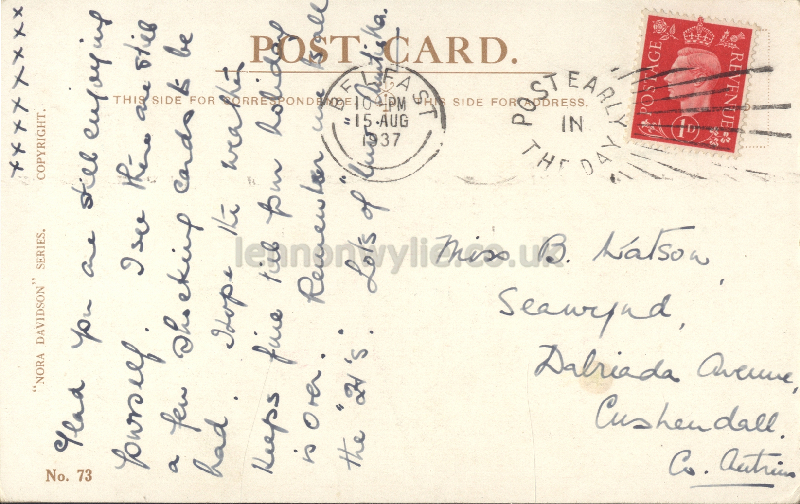 POST CARD.
THIS SIDE FOR CORRESPONDENCE. THIS SIDE FOR ADDRESS.
BELFAST
10 - PM
15 AUG
1937
POST EARLY
IN
THE DAY
POSTAGE REVENUE
1D
"NORA DAVIDSON" SERIES. COPYRIGHT.
No. 73
xxxxxxxxx
Glad you are still enjoying
yourself. I see there are still
a few shocking cards to be
had. Hope the weather
keeps fine till your holiday
is over. Remember me to all
the "24's". Lots of
Miss B. Watson,
Seawynd,
Dalriada Avenue,
Cushendall.
Co. Antrim
lennonwylie.co.uk